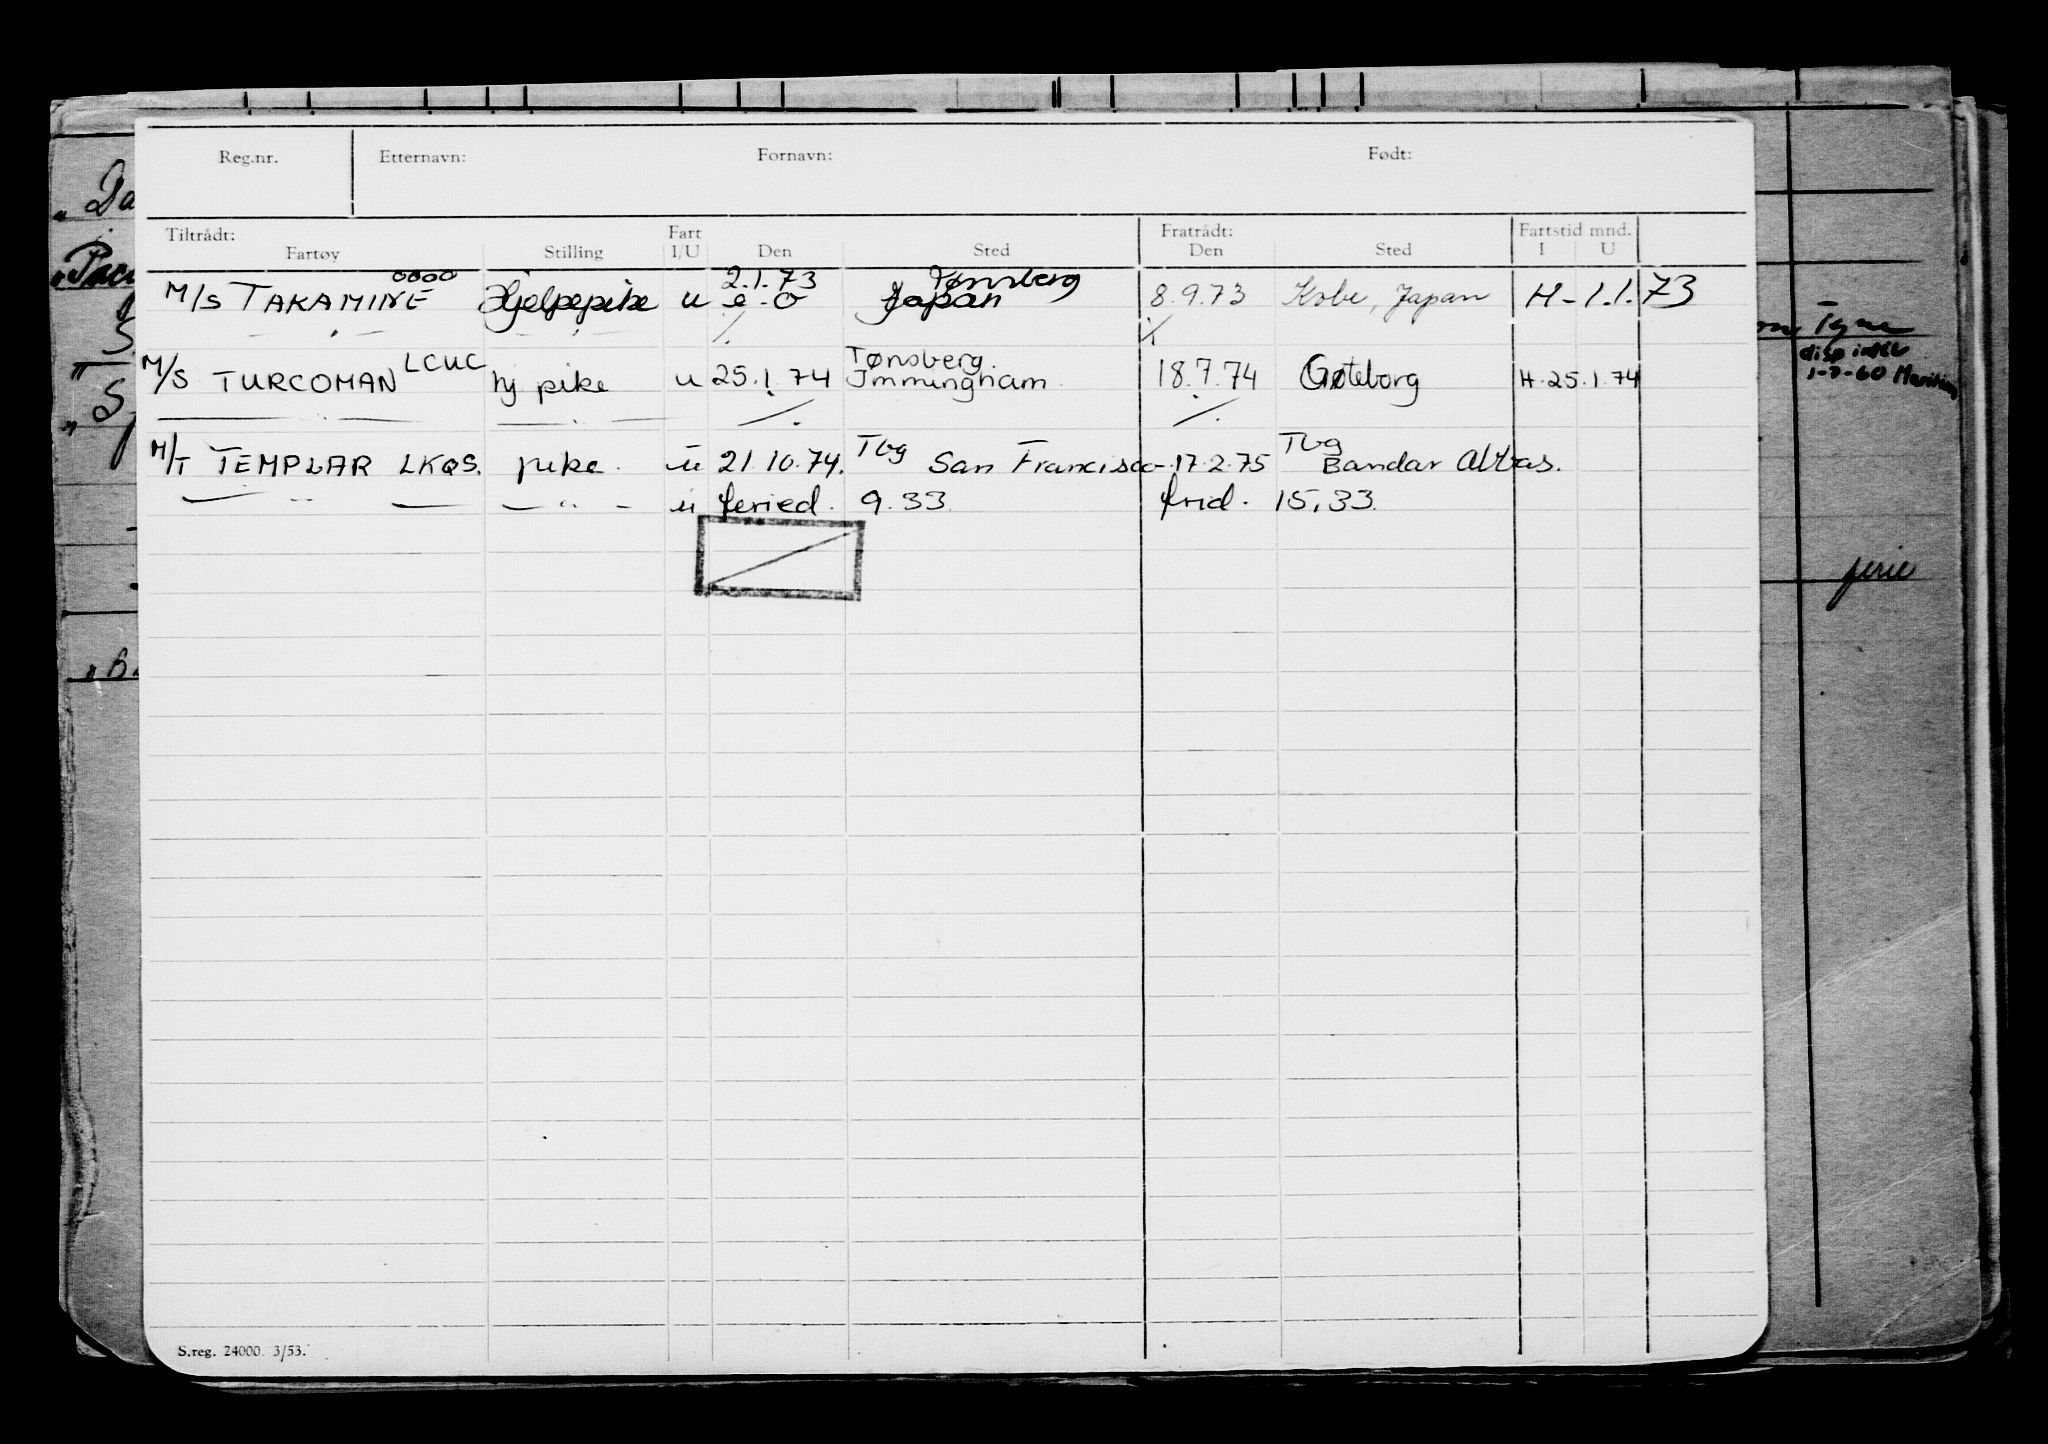 Reg.nr. Etternavn: Fornavn: Født:
Tiltrådt: Fart Fratrådt: Fartstid mnd.
Fartøy Stilling I/U Den Sted Den Sted I U
oooo 2.1.73 Tønsberg
M/S TAKAMINE Hjelpepike u e-o Japan 8.9.73 Kobe, Japan H-1.1.73
LCUC Tønsberg
M/S TURCOMAN hj pike u 25.1.74 Immingham 18.7.74 Gøteborg H.25.1.74
Tbg Tbg
M/T TEMPLAR LKQS. pike. u 21.10.74. San Francisco-17.2.75 Bandar Abbas.
— " — — " - u feried. 9.33. frid. 15,33.
S.reg. 24000. 3/53.
Da
Tyne
disp inkl
1-7-60
ferie